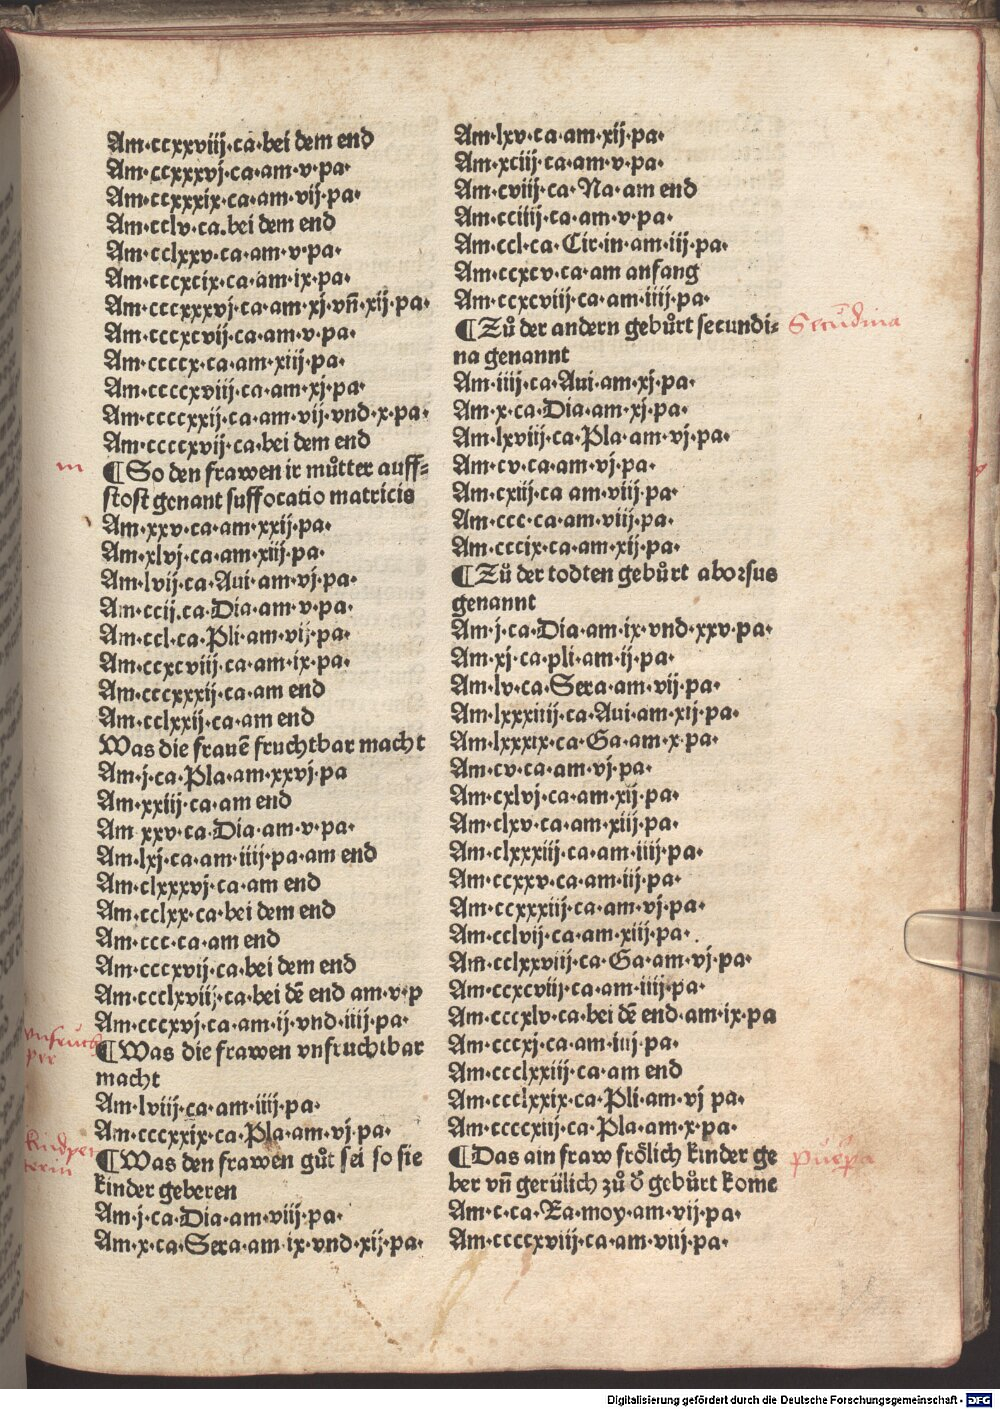 Am·ccxxviij·ca·bei dem end
Am·ccxxxvj·ca·am·v·pa·
Am·ccxxxix·ca·am·vij·pa·
Am·cclv·ca.bei dem end
Am·cclxxv·ca·am·v·pa·
Am·cccxcix·ca·am·ix·pa·
Am·cccxxxvj·ca·am·xj·vn̄·xij·pa·
Am·cccxcvij·ca·am·v·pa·
Am·ccccx·ca·am·xiij·pa·
Am·ccccxviij·ca·am·xj·pa·
Am·ccccxxij·ca·am·vij·vnd·x·pa·
Am·ccccxvij·ca·bei dem end
¶So den frawen ir můtter auff⸗
stost genant suffocatio matricis
Am·xxv·ca·am·xxij·pa·
Am·xlvj·ca·am·xiij·pa·
Am·lvij·ca·Aui·am·vj·pa·
Am·ccij.ca·Dia·am·v·pa·
Am·ccl·ca·Pli·am·vij·pa·
Am·ccxcviij·ca·am·ix·pa·
Am·cccxxxij·ca·am end
Am·cclxxij·ca·am end
Was die frauē fruchtbar macht
Am·j·ca·Pla·am·xxvj·pa
Am·xxiij·ca·am end
Am xxv·ca·Dia·am·v·pa·
Am·lxj·ca·am·iiij·pa·am end
Am·clxxxvj·ca·am end
Am·cclxx·ca·bei dem end
Am·ccc·ca·am end
Am·cccxvij·ca·bei dem end
Am·ccclxviij·ca·bei dē end am·v·p
Am·cccxvj·ca·am·ij·vnd·iiij·pa·
¶Was die frawen vnfruchtbar
macht
Am·lviij·ca·am·iiij·pa·
Am·cccxxix·ca·Pla·am·vj·pa·
¶Was den frawen gůt sei so sie
kinder geberen
Am·j·ca·Dia·am·viij·pa·
Am·x·ca·Sera·am·ix·vnd·xij·pa·
Am·lxv·ca·am·xij·pa·
Am·xciij·ca·am·v·pa·
Am·cviij·ca·Na·am end
Am·cciiij·ca·am·v·pa·
Am·ccl·ca·Cir·in·am·iij·pa·
Am·ccxcv·ca·am anfang
Am·ccxcviij·ca·am·iiij·pa·
¶Zů der andern gebůrt secundi⸗
na genannt
Secūdina
Am·iiij·ca·Aui·am·xj·pa·
Am·x·ca·Dia·am·xj·pa·
Am·lxviij·ca·Pla·am·vj·pa·
Am·cv·ca·am·vj·pa·
Am·cxiij·ca am·viij·pa·
Am·ccc·ca·am·viij·pa·
Am·cccix·ca·am·xij·pa·
¶Zů der todten gebůrt aborsus
genannt
Am·j·ca·Dia·am·ix·vnd·xxv·pa·
Am·xj·ca·pli·am·ij·pa·
Am·lv·ca·Sera·am·vij·pa·
Am·lxxxiiij·ca·Aui·am·xij·pa·
Am·lxxxix·ca·Ga·am·x·pa·
Am·cv·ca·am·vj·pa·
Am·cxlvj·ca·am·xij·pa·
Am·clxv·ca·am·xiij·pa·
Am·clxxxiij·ca·am·iiij·pa·
Am·ccxxv·ca·am·iij·pa·
Am·ccxxxiij·ca·am·vj·pa·
Am·cclvij·ca·am·xiij·pa·
Am·cclxxviij·ca·Ga·am·vj·pa·
Am·ccxcviij·ca·am·iiij·pa·
Am·cccxlv·ca·bei dē end·am·ix·pa
Am·cccxj·ca·am·iiij·pa·
Am·ccclxxiij·ca·am end
Am·ccclxxix·ca·Pli·am·vj pa·
Am·ccccxiij·ca·Pla·am·x·pa·
¶Das ain fraw frőlich kinder ge
ber vn̄ gerülich zů d̕ gebůrt kome
Am·c·ca·Ra·moy·am·vij·pa·
Am·ccccxviij·ca·am·viij·pa·
Digitalisierung gefördert durch die Deutsche Forschungsgemeinschaft - DFG